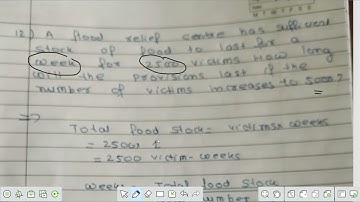 12) A flood relief centre has sufficient
stock of food to last for a
week for 2500 victims How long
will the provisions last if the
number of victims increases to 5000?
=>
Total food stock = victims x weeks
= 2500x 1
= 2500 victim-weeks
weeks Total food stock
number